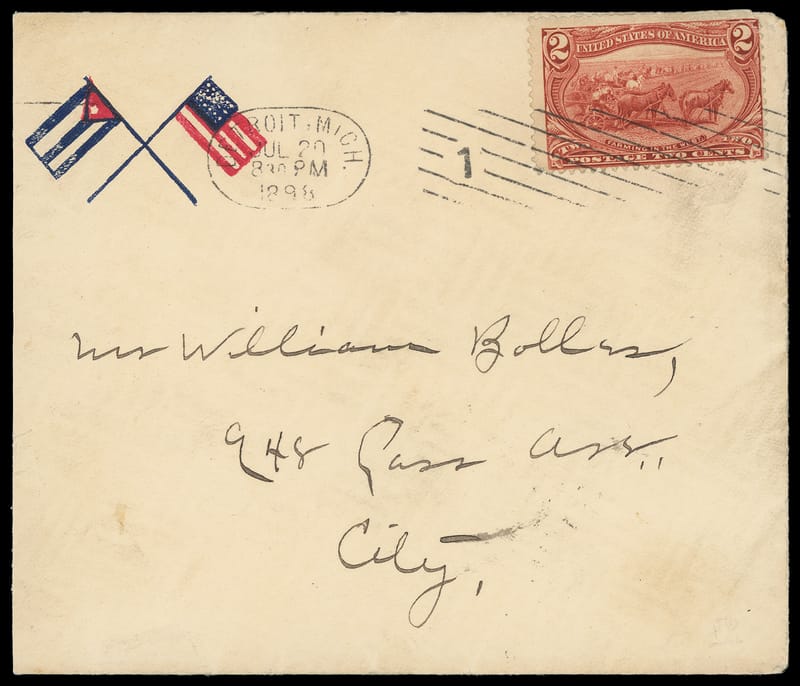 2 UNITED STATES OF AMERICA 2
FARMING IN THE WEST
POSTAGE TWO CENTS
DETROIT, MICH.
JUL 20
830 PM
1898
1
Mr William Bolles,
948 Cass Ave.,
City,